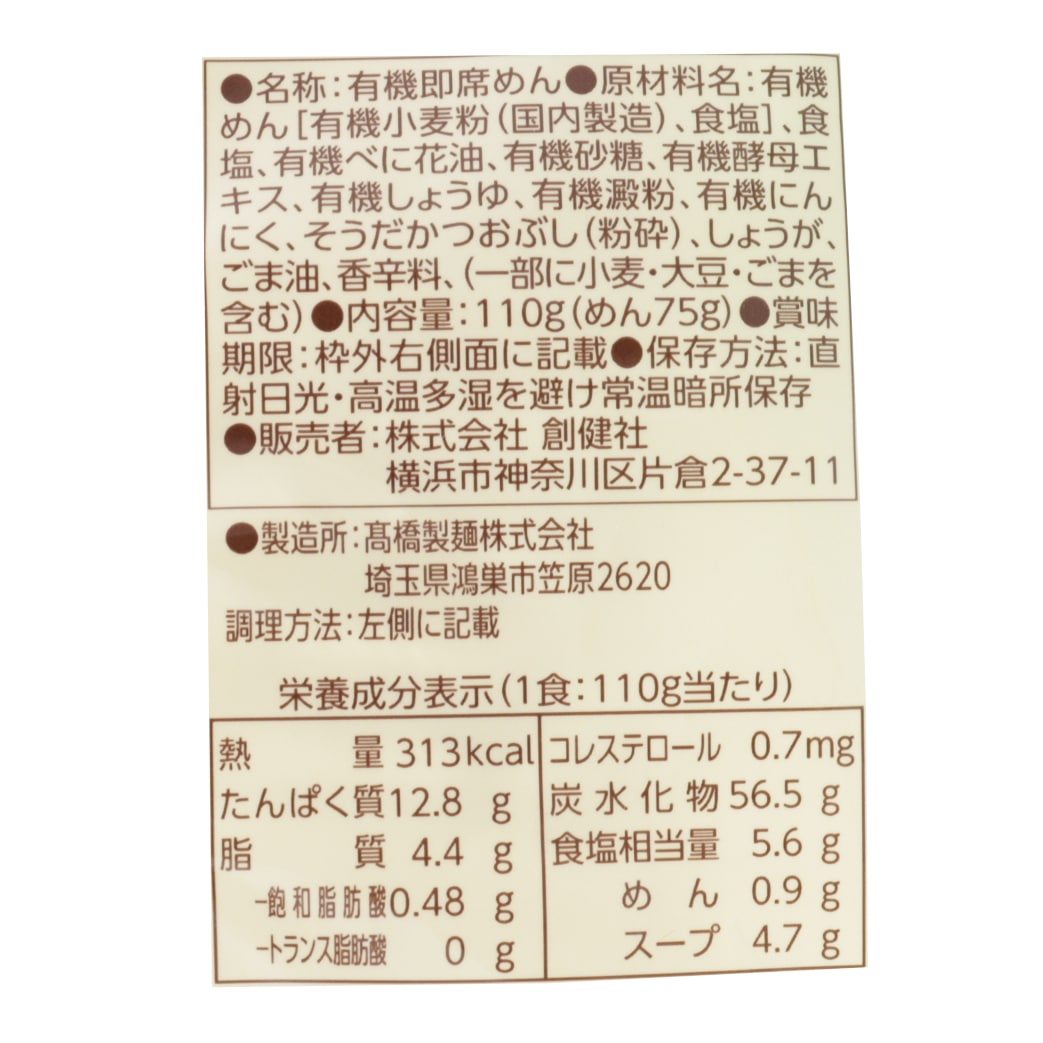 ●名称:有機即席めん●原材料名:有機
めん[有機小麦粉(国内製造)、食塩]、食
塩、有機べに花油、有機砂糖、有機酵母エ
キス、有機しょうゆ、有機澱粉、有機にん
にく、そうだかつおぶし(粉砕)、しょうが、
ごま油、香辛料、(一部に小麦・大豆・ごまを
含む)●内容量:110g(めん75g)●賞味
期限:枠外右側面に記載●保存方法:直
射日光・高温多湿を避け常温暗所保存
●販売者:株式会社 創健社
横浜市神奈川区片倉2-37-11
●製造所:髙橋製麺株式会社
埼玉県鴻巣市笠原2620
調理方法:左側に記載
栄養成分表示(1食:110g当たり)
熱量 313kcal
たんぱく質 12.8 g
脂質 4.4 g
-飽和脂肪酸 0.48 g
-トランス脂肪酸 0 g
コレステロール 0.7mg
炭水化物 56.5 g
食塩相当量 5.6 g
めん 0.9 g
スープ 4.7 g